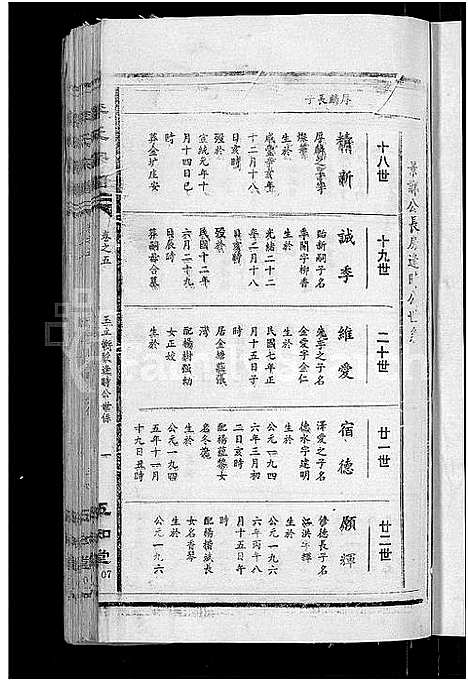 景訴公長房逢時公世系
厚麟長子
十八世
精新
厚麟之子字
煥華
生於
咸豐辛亥年
十二月十八
日亥時
歿於
宣統元年十
月十四日巳
時
葬金圹庄安
十九世
誠季
貽新嗣子名
季開字柳香
生於
光緒二十二
年二月十八
日亥時
歿於
民國十二年
六月二十九
日辰時
葬嗣母合墓
二十世
維愛
先季之子名
金愛字金仁
生於
民國七年正
月十五日子
時
居金塘蘊儀
灣
配楊樹強幼
女正姣
生於
廿一世
宿德
澤愛之子名
德水字建明
生於
公元一九四
六年三月初
二日亥時
配楊蘊黎女
名冬施
生於
公元一九四
五年十一月
十九日丑時
廿二世
願輝
修德長子名
洪輝
生於
公元一九六
六年丙午八
月十五日午
時
配楊楷成長
女名香琴
生於
公元一九六
卷之五
一
五知堂
07